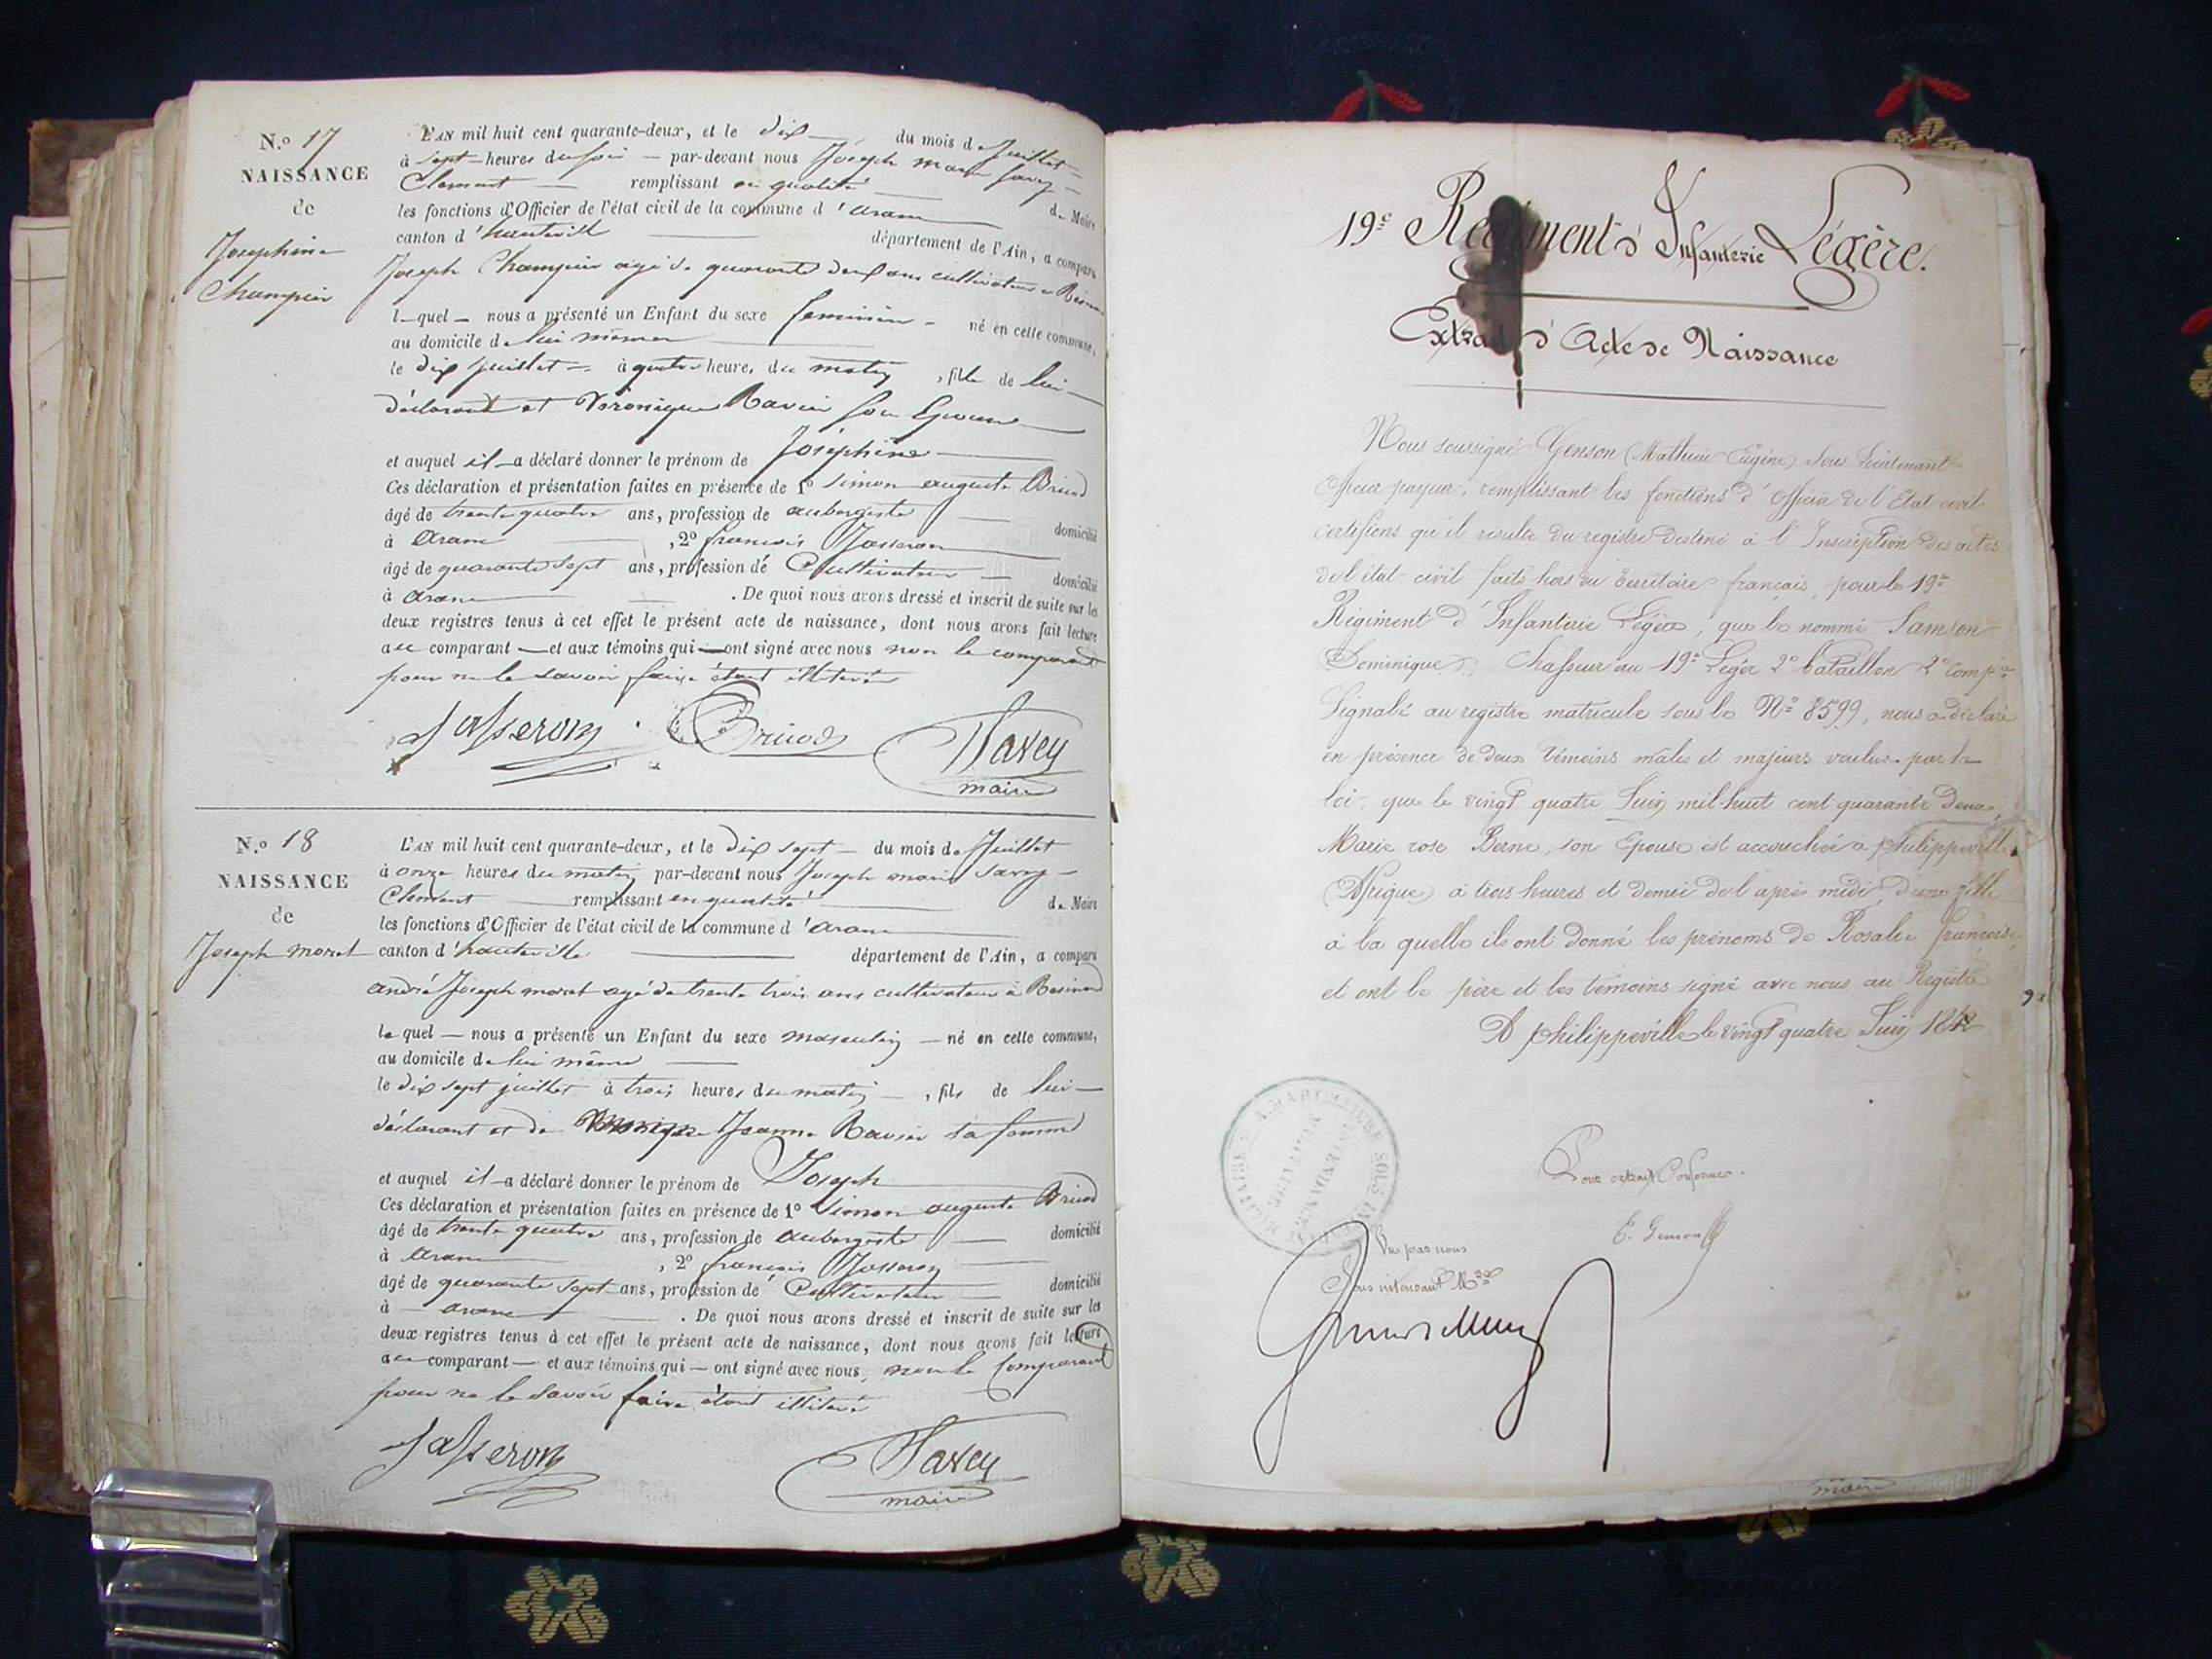 N.º 17
NAISSANCE
de
Josephine
Champier
L'AN mil huit cent quarante-deux, et le dix du mois de Juillet
à sept heures du soir par-devant nous Joseph marie Savey
Clement remplissant en qualité de Maire
les fonctions d'Officier de l'état civil de la commune d'aranc
canton d'hauteville département de l'Ain, a comparu
Joseph Champier agé de quarante deux ans cultivateur a
lequel nous a présenté un Enfant du sexe feminin né en cette commune,
au domicile de lui même
le dix juillet à quatre heures du matin, fille de lui
déclarant et Véronique Ravier son Epouse
et auquel il a déclaré donner le prénom de Joséphine
Ces déclaration et présentation faites en présence de 1º Simon auguste Bricod
âgé de trente quatre ans, profession de aubergiste domicilié
à Aranc, 2º françois Josseron
âgé de quarante sept ans, profession de Cultivateur domicilié
à aranc. De quoi nous avons dressé et inscrit de suite sur les
deux registres tenus à cet effet le présent acte de naissance, dont nous avons fait lecture
au comparant et aux témoins qui ont signé avec nous non le comparant
pour ne le savoir faire étant illiteré
Josseron Bricod Savey
maire
N.º 18
NAISSANCE
de
Joseph moret
L'AN mil huit cent quarante-deux, et le dix sept du mois de Juillet
à onze heures du matin par-devant nous Joseph marie Savey
Clement remplissant en qualité de Maire
les fonctions d'Officier de l'état civil de la commune d'aranc
canton d'hauteville département de l'Ain, a comparu
andré Joseph moret agé de trente trois ans cultivateur à Resinand
lequel nous a présenté un Enfant du sexe masculin né en cette commune,
au domicile de lui même
le dix sept juillet à trois heures du matin, fils de lui
déclarant et de Jeanne Ravier sa femme
et auquel il a déclaré donner le prénom de Joseph
Ces déclaration et présentation faites en présence de 1º Simon auguste Bricod
âgé de trente quatre ans, profession de aubergiste domicilié
à Aranc, 2º françois Josseron
âgé de quarante sept ans, profession de Cultivateur domicilié
à aranc. De quoi nous avons dressé et inscrit de suite sur les
deux registres tenus à cet effet le présent acte de naissance, dont nous avons fait lecture
au comparant et aux témoins qui ont signé avec nous, non le Comparant
pour ne le savoir faire étant illiteré
Josseron Savey
maire
19e Régiment d'Infanterie Légère.
Extrait d'Acte de Naissance
Nous soussigné Genson (Mathieu Eugène) Sous Lieutenant
Officier payeur, remplissant les fonctions d'Officier de l'Etat civil
certifions qu'il résulte du registre destiné à l'Inscription des actes
de l'état civil faits hors du territoire français, pour le 19e
Régiment d'Infanterie Légère, que le nommé Samson
Dominique, Chasseur au 19e Léger 2e bataillon 2e Compie
Signalé au registre matricule sous le No 8599, nous a déclaré
en présence de deux témoins mâles et majeurs voulus par la
loi, que le vingt quatre Juin mil huit cent quarante deux,
Marie rose Berne, son Epouse est accouchée à philippeville
(Afrique) à trois heures et demie de l'après midi, d'une fille
à la quelle ils ont donné les prénoms de Rosalie françoise
et ont le père et les témoins signé avec nous au Registre
A philippeville le vingt quatre Juin 1842
Pour extrait Conforme.
E. Genson
Vu par nous
Sous intendant Mre
maire